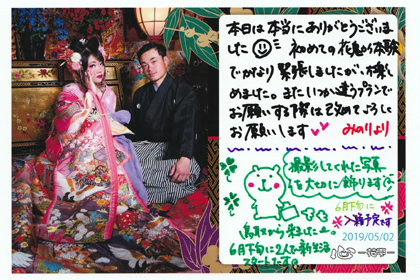 本日は本当にありがとうございま
した 初めての花魁の体験
でかなり緊張しましたが、楽し
めました。またいつか違うプランで
お願いする際は改めてよろしく
お願いします みのりより
撮影してくれた写真
を大切に飾ります
6月下旬に
入籍予定です
鳥取から来ました
6月下旬に2人で新生活
スタートです
2019/05/02